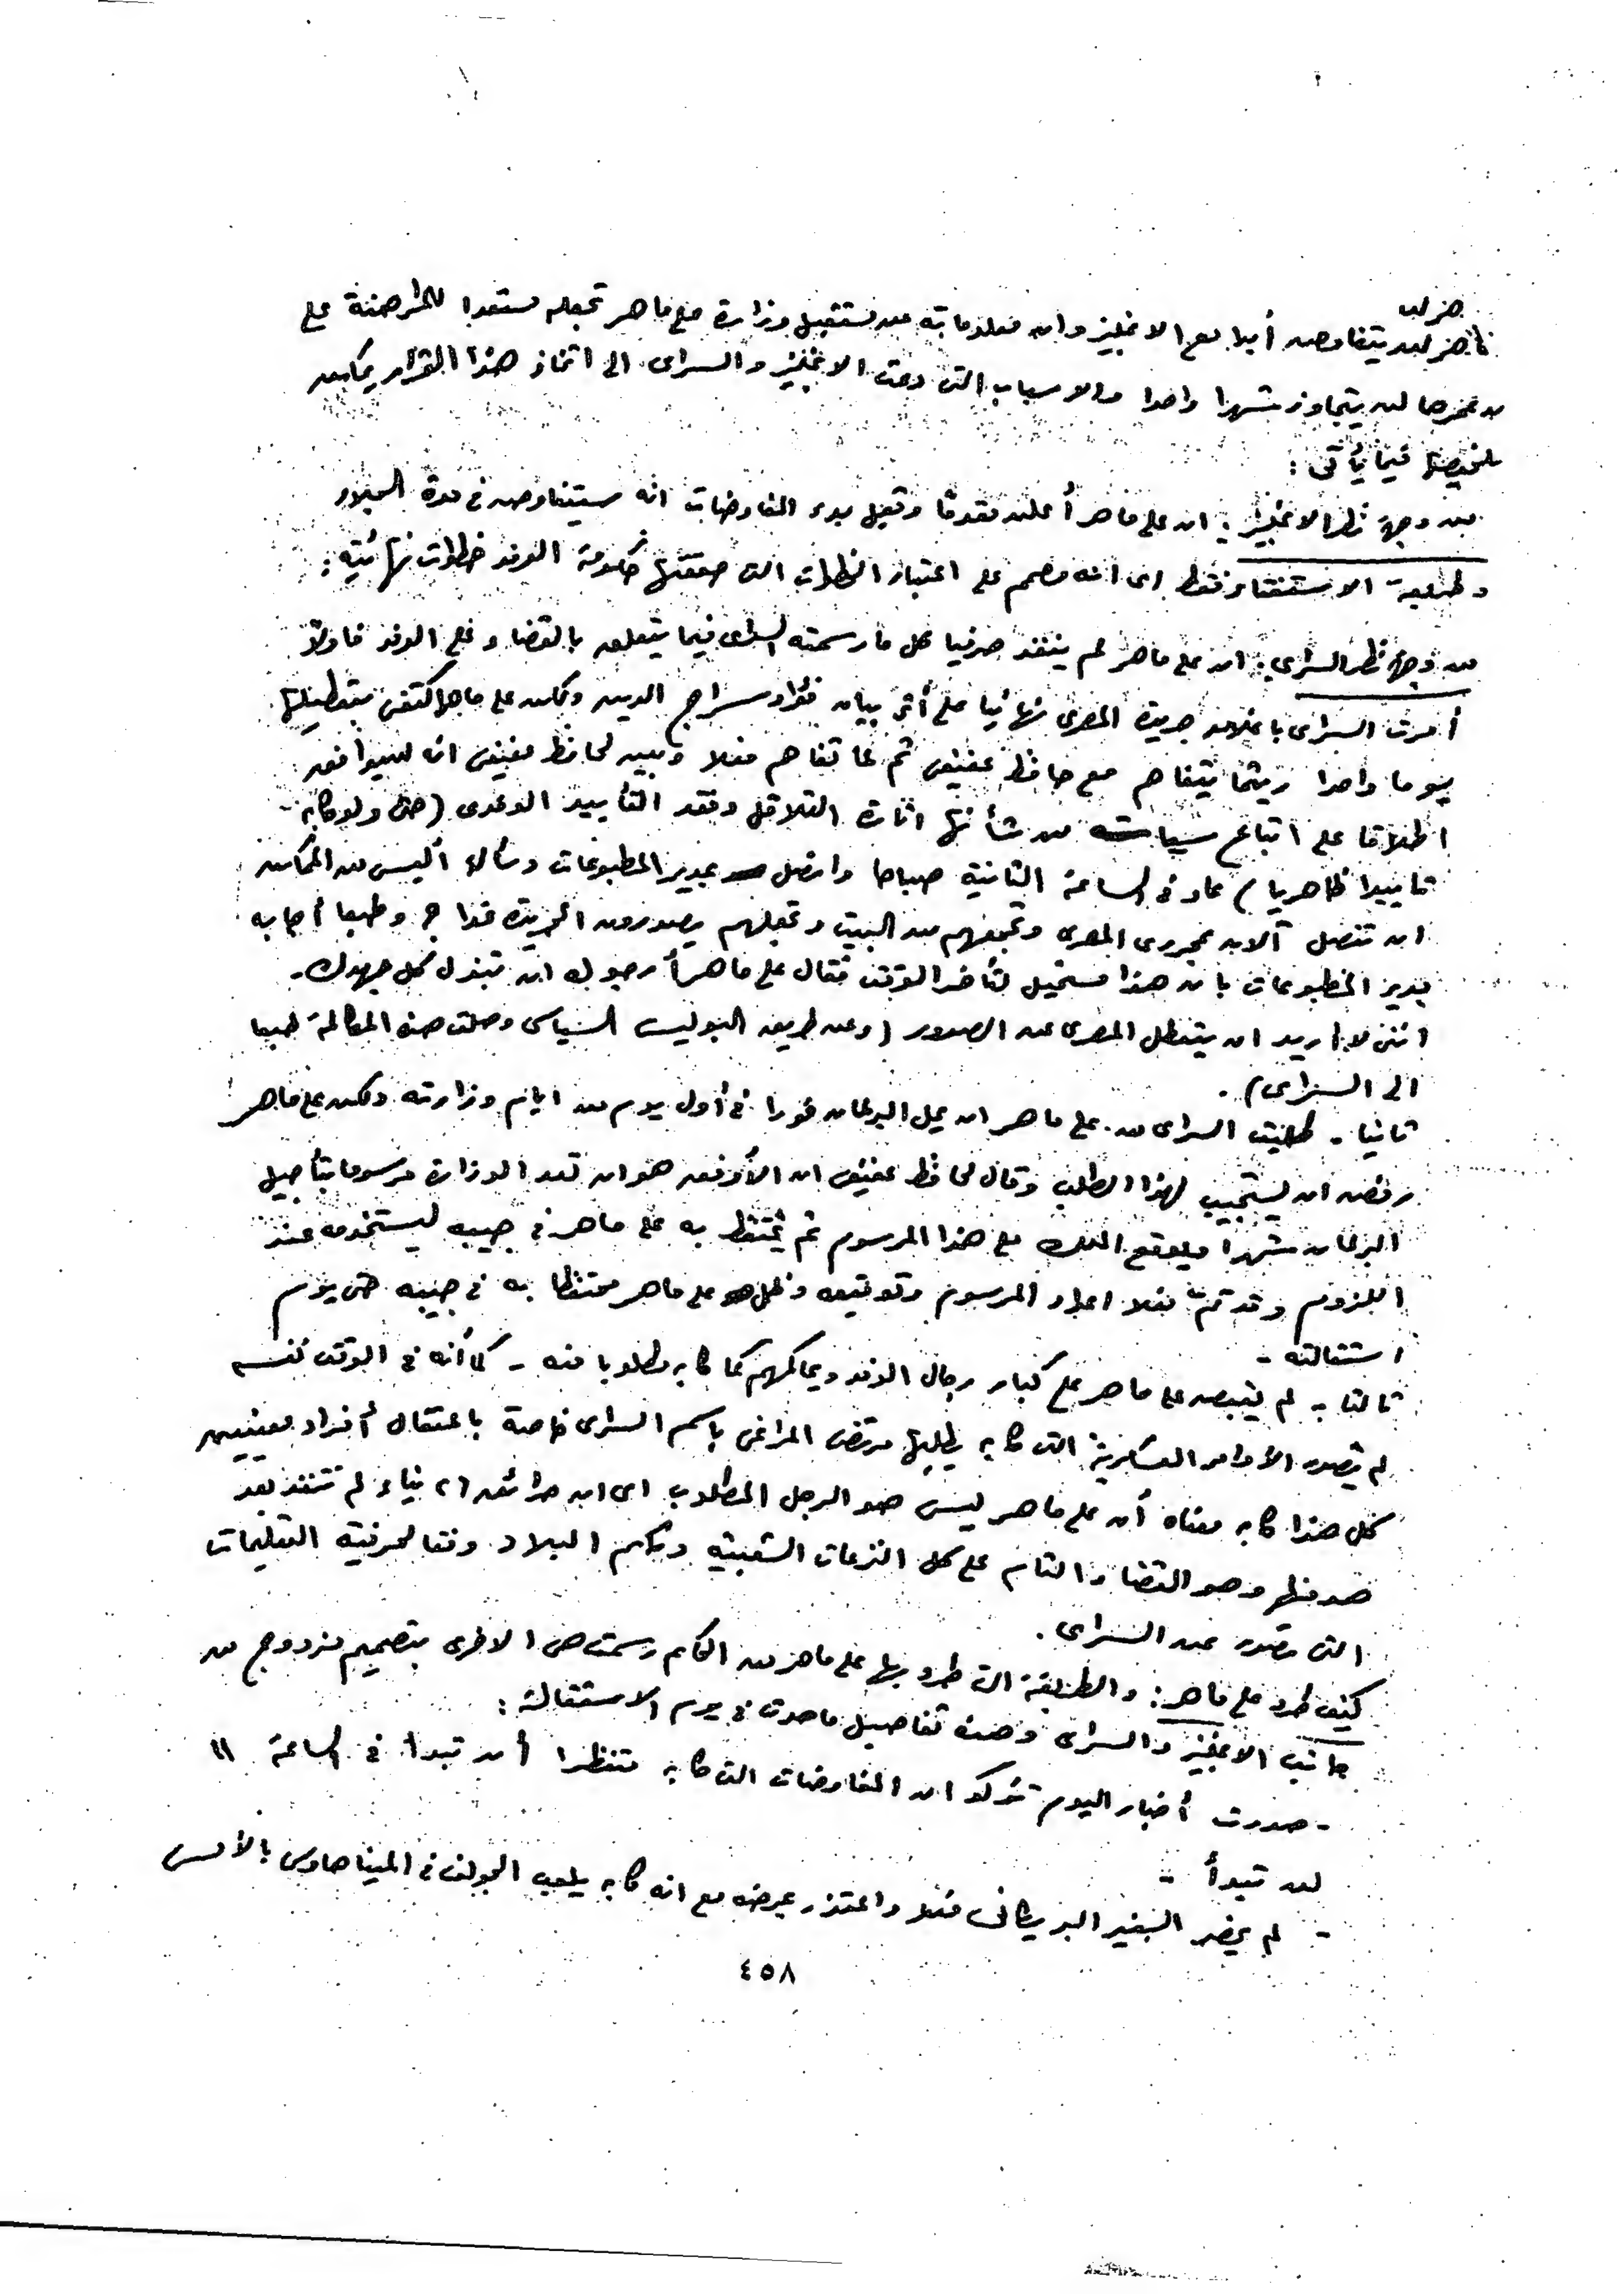 هزلن
ماهر لن يتفاوض أبدا مع الانجليز وان معلوماته عن مستقبل وزارة على ماهر تجعله مستعدا للمراهنة على
ان عمرها لن يتجاوز شهرا واحدا والاسباب التى دعت الانجليز والسراى الى اتخاذ هذا القرار يمكن
تلخيصها فيما يأتى :
من وجهة نظر الانجليز : ان على ماهر أعلن مقدما وقبل بدء المفاوضات انه سيتفاوض فى مدة الجلاء
وطريقة الاستفتاء فقط اى انه مصمم على اعتبار الخطوات التى حققتها حكومة الوفد خطوات نهائية :
من وجهة نظر السراى : ان على ماهر لم ينفذ حرفيا كل ما رسمته السراى فيما يتعلق بالقضاء على الوفد فاولا
أمرت السراى باغلاق جريدة المصرى نهائيا على أثر بيان فؤاد سراج الدين ولكن على ماهر اكتفى بتعطيلها
يوما واحدا ريثما يتفاهم مع حافظ عفيفى ثم لما تفاهم فعلا وتبين لحافظ عفيفى انه لا يوافق
اطلاقا على اتباع سياسة من شأنها اثارة القلاقل وفقد التأييد الوفدى (حتى ولو كان
تأييدا ظاهريا) عاد فى الساعة الثانية صباحا واتصل بمدير المطبوعات وسأله أليس من الممكن
ان تتصل الآن بمحررى المصرى وتجمعهم من البيت وتجعلهم يصدرون الجريدة غدا ؟ وطبعا أجابه
مدير المطبوعات بان هذا مستحيل لتأخر الوقت فقال على ماهر أرجوك ان تبذل كل جهدك .
اننى لا أريد ان يتعطل المصرى عن الصدور (وعن طريق البوليس السياسى وصلت هذه المكالمة طبعا
الى السراى) .
ثانيا - طلبت السراى من على ماهر ان يحل البرلمان فورا فى أول يوم من ايام وزارته ولكن على ماهر
رفض ان يستجيب لهذا الطلب وقال لحافظ عفيفى ان الأوفق هو ان تعد الوزارة مرسوما بتأجيل
البرلمان شهرا ويوقع الملك على هذا المرسوم ثم يحتفظ به على ماهر فى جيبه ليستخدمه عند
اللزوم وقد تم فعلا اعداد المرسوم وتوقيعه وظل على ماهر محتفظا به فى جيبه حتى يوم
استقالته -
ثالثا - لم يقبض على ماهر على كبار رجال الوفد ويحاكمهم كما كان مطلوبا منه - كما أنه فى الوقت نفسه
لم يصدر الأوامر العسكرية التى كان يطلبها مرتضى المراغى باسم السراى خاصة باعتقال أفراد معينين
كل هذا كان معناه أن على ماهر ليس هو الرجل المطلوب اى ان حرائق ٢٦ يناير لم تنفذ بعد
هدفها وهو القضاء التام على كل النزعات الشعبية وحكم البلاد وفقا لحرفية التعليمات
التى تصدر عن السراى .
كيف طرد على ماهر : والطريقة التى طرد بها على ماهر من الحكم رسمت هى الاخرى بتصميم مزدوج من
جانب الانجليز والسراى وهذه تفاصيل ما حدث فى يوم الاستقالة :
- صدرت أخبار اليوم تؤكد ان المفاوضات التى كان منتظرا أن تبدأ فى الساعة ١١
لن تبدأ -
- لم يحضر السفير البريطانى فعلا واعتذر بمرضه مع انه كان يلعب الجولف فى المينا هاوس بالأمس
٤٥٨